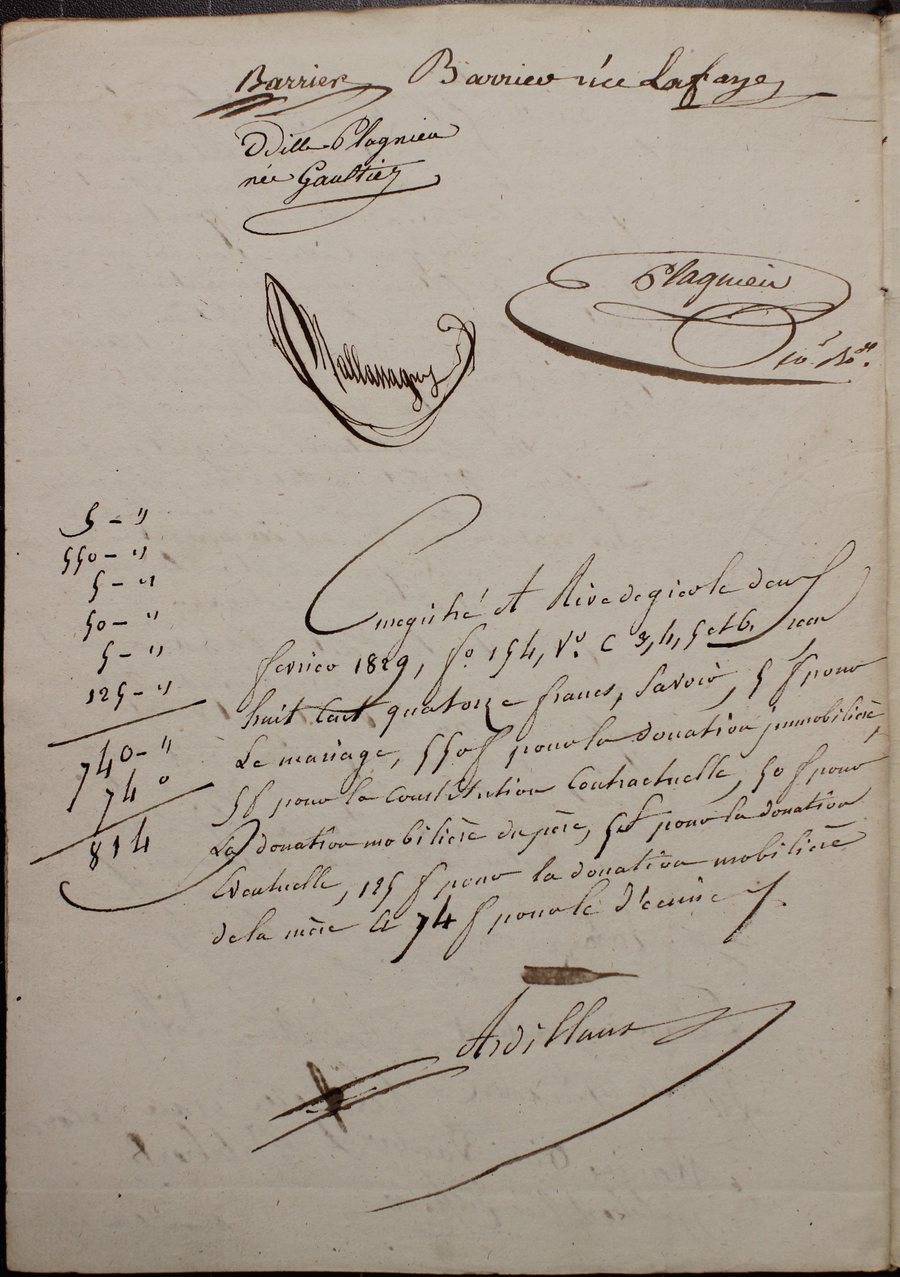 Barrier Barrier née Lafaye
Odille Plagnieu
née Gaultier
Plagnieu
5 - "
550 - "
5 - "
50 - "
5 - "
125 - "
740 - "
74 "
814
Enregistré à Rive de gier le deux
fevrier 1829, fo. 154, Vo. C 3, 4, 5 et 6. reçu
huit cent quatorze francs, Savoir, 5 f pour
Le mariage, 550 f pour la donation immobilière,
5 f pour la constitution Contractuelle, 50 f pour
La donation mobilière du père, 5 f pour la donation
Eventuelle, 125 f pour la donation mobilière
de la mère et 74 f pour le Décime
Ardillaux